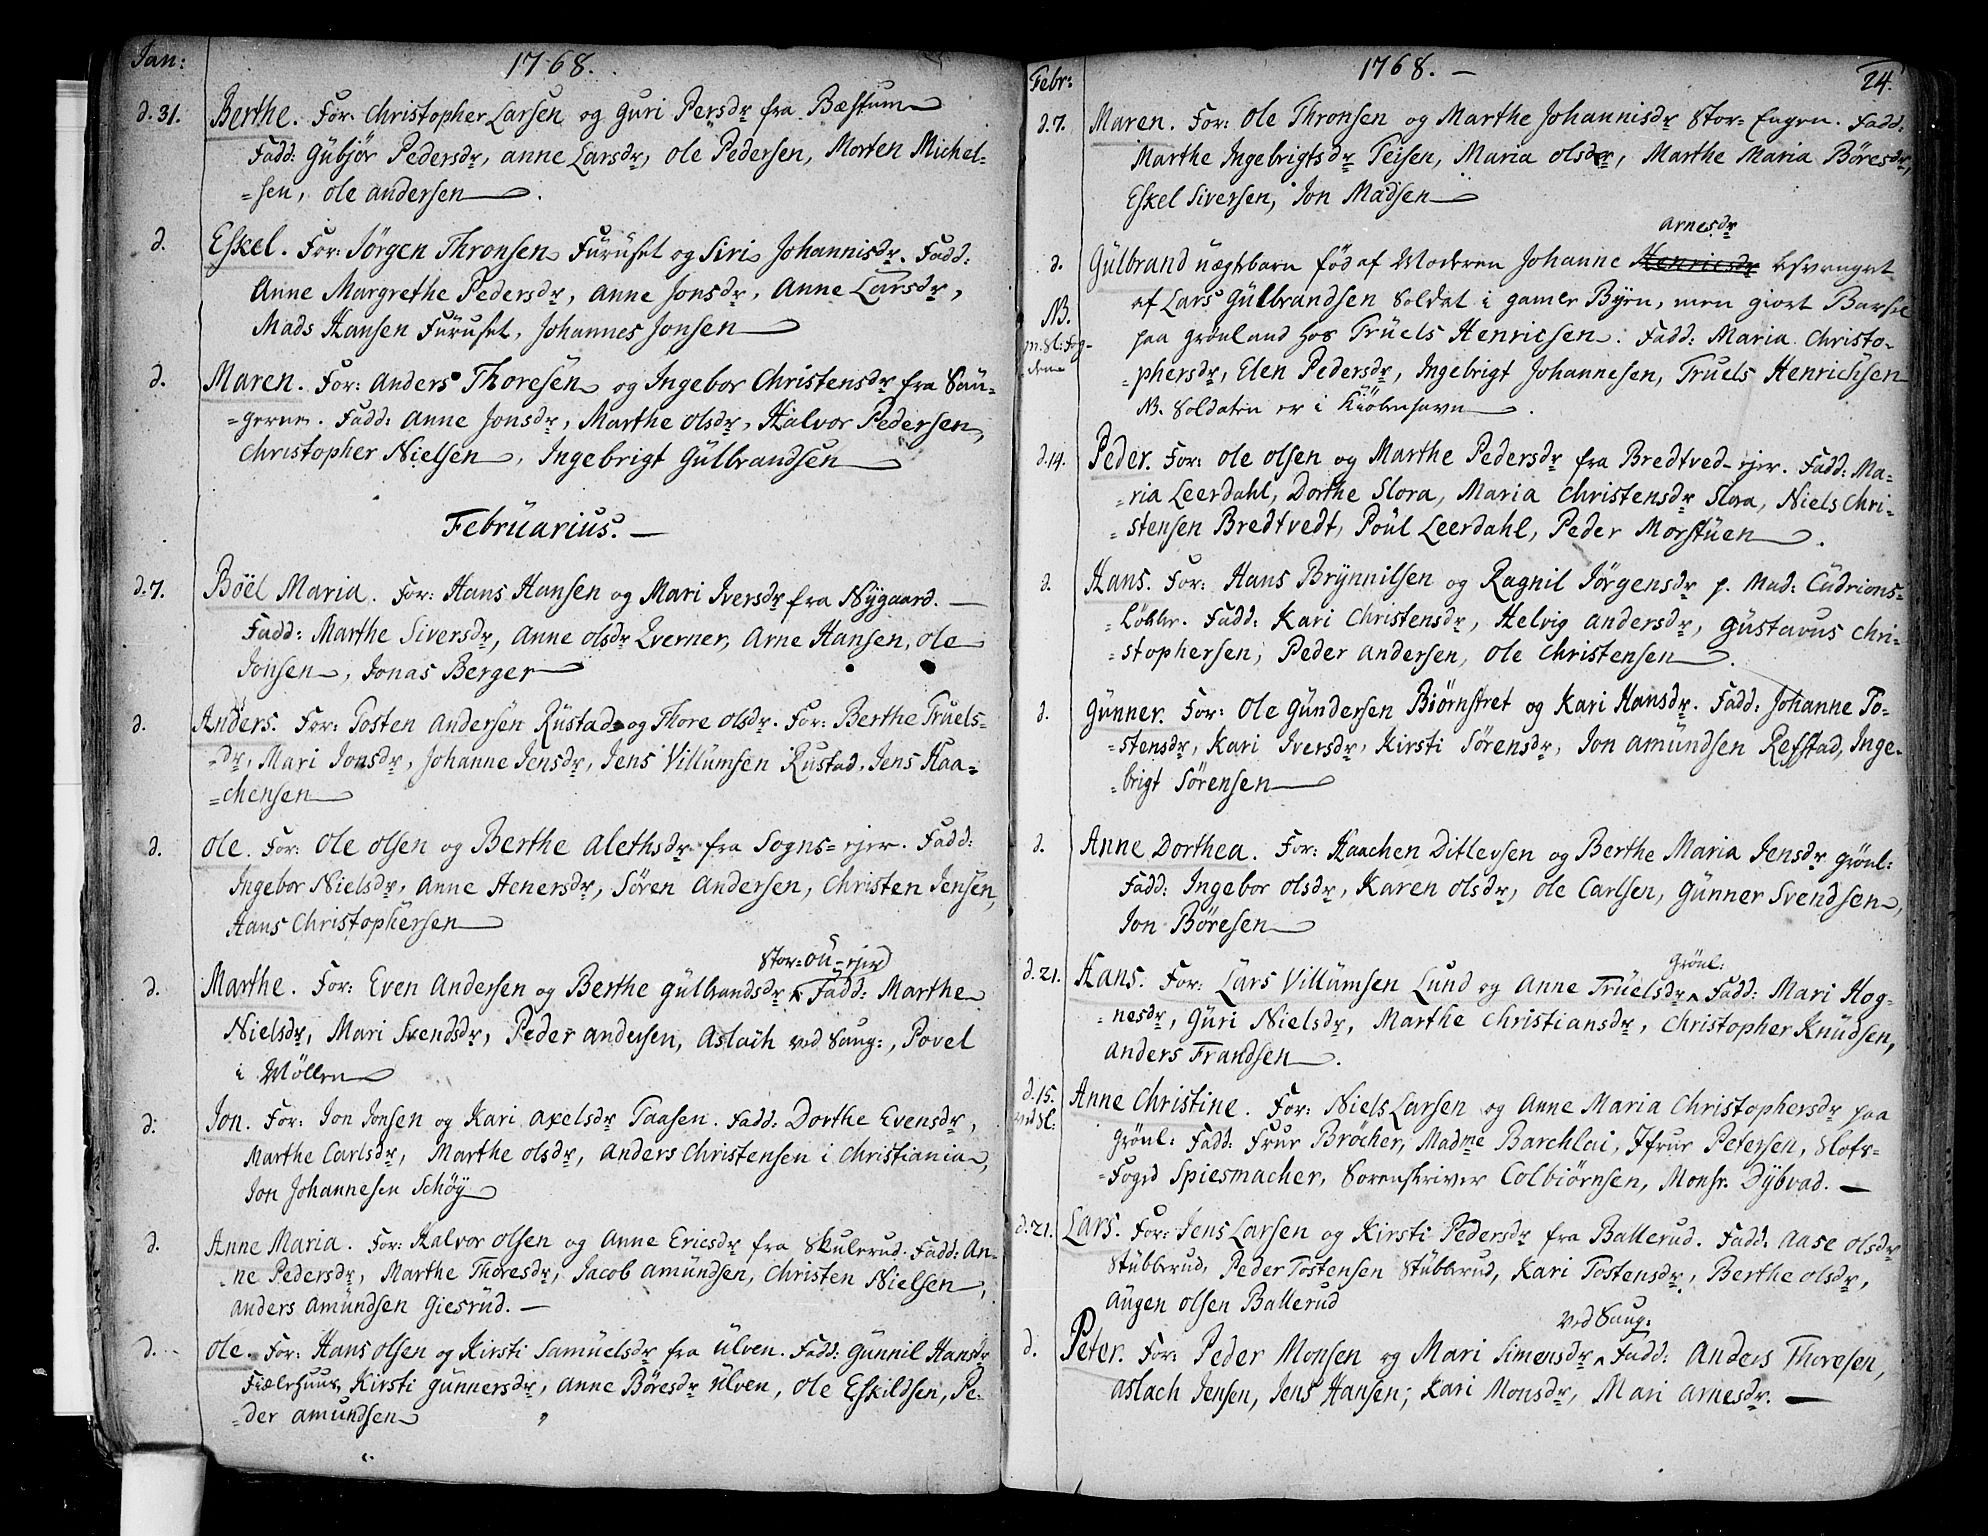 Jan: 1768.
d. 31. Berthe. For: Christopher Larsen og Guri Persdr fra Bæstum
Fadd: Gübjör Pedersdr, Anne Larsdr, Ole Pedersen, Morten Michel-
-sen, Ole Andersen.
d. Eskel. For: Jörgen Thronsen Furuset og Siri Johannisdr. Fadd:
Anne Margrethe Pedersdr, Anne Jonsdr, Anne Larsdr,
Mads Hansen Füruset, Johannes Jonsen
d. Maren. For: Anders Thoresen og Ingebor Christensdr fra Sau-
-gerne. Fadd: Anne Jonsdr, Marthe Olsdr, Halvor Pedersen,
Christopher Nielsen, Ingebrigt Gülbrandsen
Februarius. —
d. 7. Böel Maria. For: Hans Hansen og Mari Iversdr fra Nygaard. —
Fadd: Marthe Siversdr, Anne Olsdr Qverner, Arne Hansen, Ole
Jonsen, Jonas Berger
d. Anders. For: Tosten Andersen Rüstad og Thore Olsdr. For: Berthe Truels-
-dr, Mari Jonsdr, Johanne Jensdr, Jens Villumsen Rustad, Jens Haa-
=chensen
d. Ole. For: Ole Olsen og Berthe Alethsdr fra Sogns=ejer. Fadd:
Ingebor Nielsdr, Anne Henersdr, Sören Andersen, Christen Jensen,
Hans Christophersen
Stor=ou-ejer
d. Marthe. For: Even Andersen og Berthe Gülbrandsdr ^ Fadd: Marthe
Nielsdr, Mari Svendsdr, Peder Andersen, Aslach ved Saug:, Povel
i Möllen
d: Jon. For: Jon Jonsen og Kari Axelsdr Taasen. Fadd: Dorthe Evensdr,
Marthe Carlsdr, Marthe Olsdr, Anders Christensen i Christiania,
Jon Johannesen Schöy
d. Anne Maria. For: Halvor Olsen og Anne Ericsdr fra Skulerud. Fadd: An-
ne Pedersdr, Marthe Thoresdr, Jacob Amündsen, Christen Nielsen,
Anders Amündsen Giesrüd. —
d. Ole. For: Hans Olsen og Kirsti Samuelsdr fra Ülven. Fadd: Gunnil Hansdr
Fiælehuus, Kirsti Gunnersdr, Anne Böresdr Ülven, Ole Eskildsen, Pe-
-der Amundsen
Febr: 1768. — 24.
d. 7. Maren. For: Ole Thronsen og Marthe Johannisdr Stor=Engen. Fadd:
Marthe Ingebrigtsdr Teisen, Maria Olsdr, Marthe Maria Böresdr,
Eskel Siversen, Jon Madsen
Arnesdr
d. Gülbrand uægtebarn föd af Moderen Johanne Henricsdr besvangret
NB. af Lars Gülbrandsen Soldat i gamle Byen, men giort Barsel
paa Grönland hos Trüels Henricsen. Fadd: Maria Christo-
-phersdr, Elen Pedersdr, Ingebrigt Johannesen, Truels Henrichsen
NB. Soldaten er i Kiöbenhavn.
d. 14. Peder. For: Ole Olsen og Marthe Pedersdr fra Bredtved-ejer. Fadd: Ma-
-ria Leerdahl, Dorthe Slora, Maria Christensdr Slora, Niels Chri-
-stensen Bredtvedt, Poül Leerdahl, Peder Morstüen.
d. Hans. For: Hans Brynnilsen og Ragnil Jörgensdr p. Mad: Cüdrions-
-Löbbe. Fadd: Kari Christensdr, Helvig Andersdr, Güstavus Chri-
-stophersen, Peder Andersen, Ole Christensen.
d. Günner. For: Ole Gündersen Biörnstret og Kari Hansdr. Fadd: Johanne To-
-stensdr, Kari Iversdr, Kirsti Sörensdr, Jon Amündsen Refstad, Inge-
-brigt Sörensen
d. Anne Dorthea. For: Haachen Ditlevsen og Berthe Maria Jensdr Grönl:
Fadd: Ingebor Olsdr, Karen Olsdr, Ole Carlsen, Günner Svendsen,
Jon Böresen
Grönl:
d. 21. Hans. For: Lars Villümsen Lund og Anne Trüelsdr ^ Fadd: Mari Hog-
-nesdr, Güri Nielsdr, Marthe Christiansdr, Christopher Knüdsen,
Anders Frandsen.
d. 15. Anne Christine. For: Niels Larsen og Anne Maria Christophersdr paa
Grönl: Fadd: Frue Bröcher, Madme Barchlai, Jfrue Petersen, Slots-
-Foged Spiesmacher, Sorenskriver Colbiörnsen, Monsr. Dybvad. —
d. 21. Lars. For: Jens Larsen og Kirsti Pedersdr fra Ballerud. Fadd: Aase Olsdr
Stübberud, Peder Tostensen Stübberud, Kari Tostensdr, Berthe Olsdr,
Augen Olsen Ballerud
ved Saug:
d. Peter. For: Peder Monsen og Mari Simensdr ^ Fadd: Anders Thoresen,
Aslach Jensen, Jens Hansen, Kari Monsdr, Mari Arnesdr. —